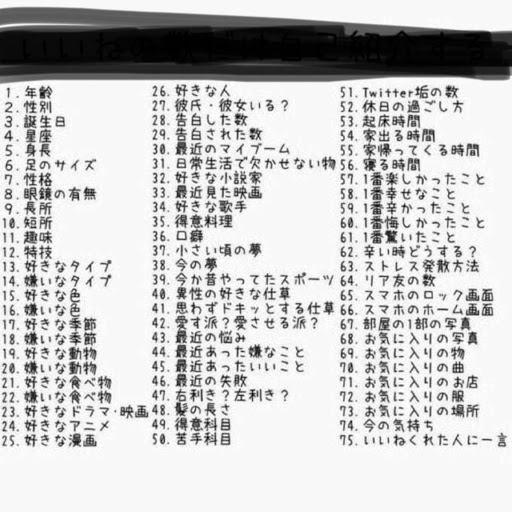 いいねの数だけ自己紹介する
1. 年齢
2. 性別
3. 誕生日
4. 星座
5. 身長
6. 足のサイズ
7. 性格
8. 眼鏡の有無
9. 長所
10. 短所
11. 趣味
12. 特技
13. 好きなタイプ
14. 嫌いなタイプ
15. 好きな色
16. 嫌いな色
17. 好きな季節
18. 嫌いな季節
19. 好きな動物
20. 嫌いな動物
21. 好きな食べ物
22. 嫌いな食べ物
23. 好きなドラマ・映画
24. 好きなアニメ
25. 好きな漫画
26. 好きな人
27. 彼氏・彼女いる?
28. 告白した数
29. 告白された数
30. 最近のマイブーム
31. 日常生活で欠かせない物
32. 好きな小説家
33. 最近見た映画
34. 好きな歌手
35. 得意料理
36. 口癖
37. 小さい頃の夢
38. 今の夢
39. 今か昔やってたスポーツ
40. 異性の好きな仕草
41. 思わずドキッとする仕草
42. 愛す派?愛させる派?
43. 最近の悩み
44. 最近あった嫌なこと
45. 最近あったいいこと
46. 最近の失敗
47. 右利き?左利き?
48. 髪の長さ
49. 得意科目
50. 苦手科目
51. Twitter垢の数
52. 休日の過ごし方
53. 起床時間
54. 家出る時間
55. 家帰ってくる時間
56. 寝る時間
57. 1番楽しかったこと
58. 1番幸せなこと
59. 1番辛かったこと
60. 1番悔しかったこと
61. 1番驚いたこと
62. 辛い時どうする?
63. ストレス発散方法
64. リア友の数
65. スマホのロック画面
66. スマホのホーム画面
67. 部屋の1部の写真
68. お気に入りの写真
69. お気に入りの物
70. お気に入りの曲
71. お気に入りのお店
72. お気に入りの服
73. お気に入りの場所
74. 今の気持ち
75. いいねくれた人に一言